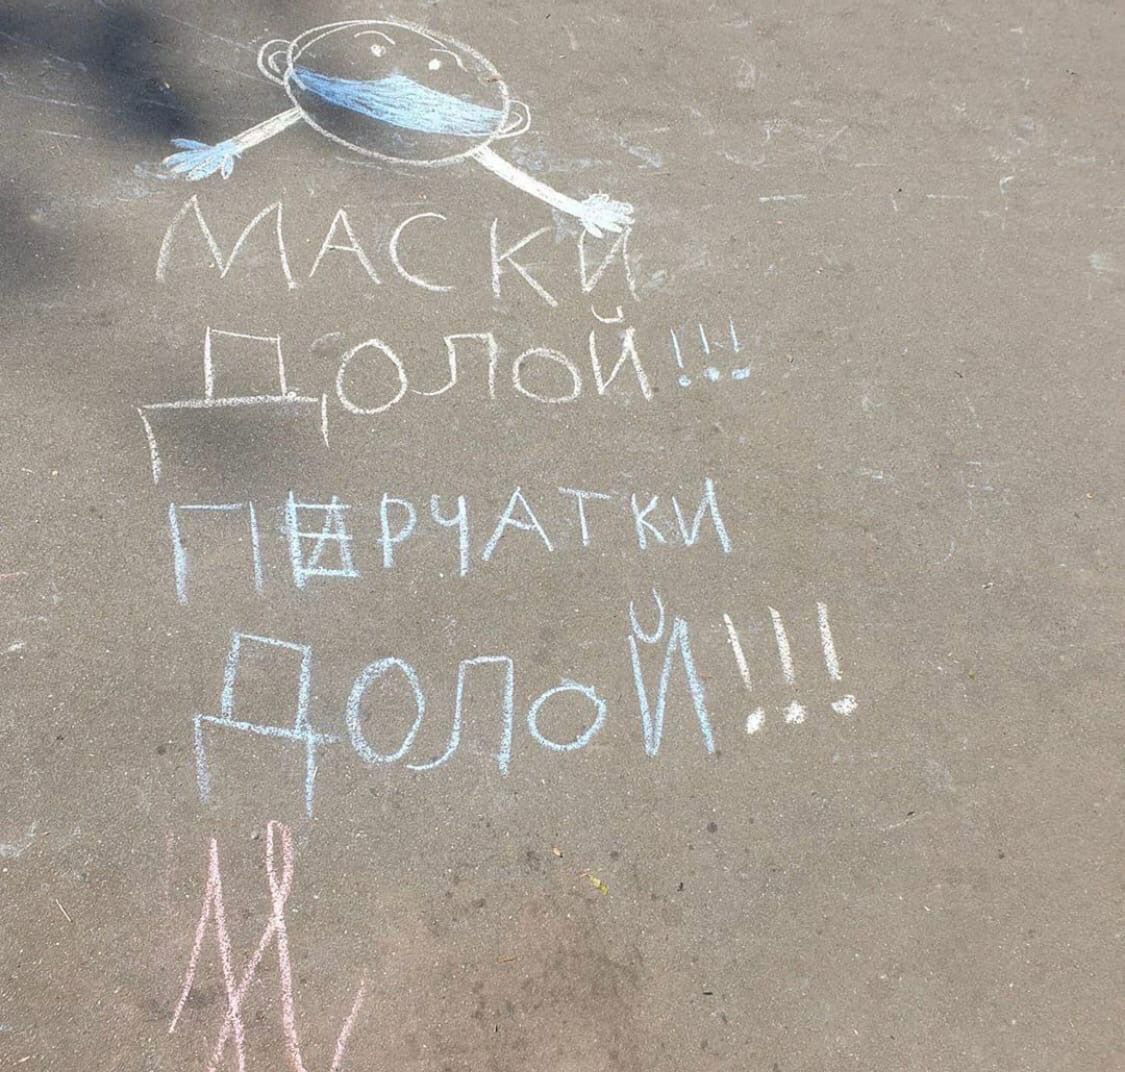 МАСКИ
ДОЛОЙ!!!
ПЕРЧАТКИ
ДОЛОЙ!!!